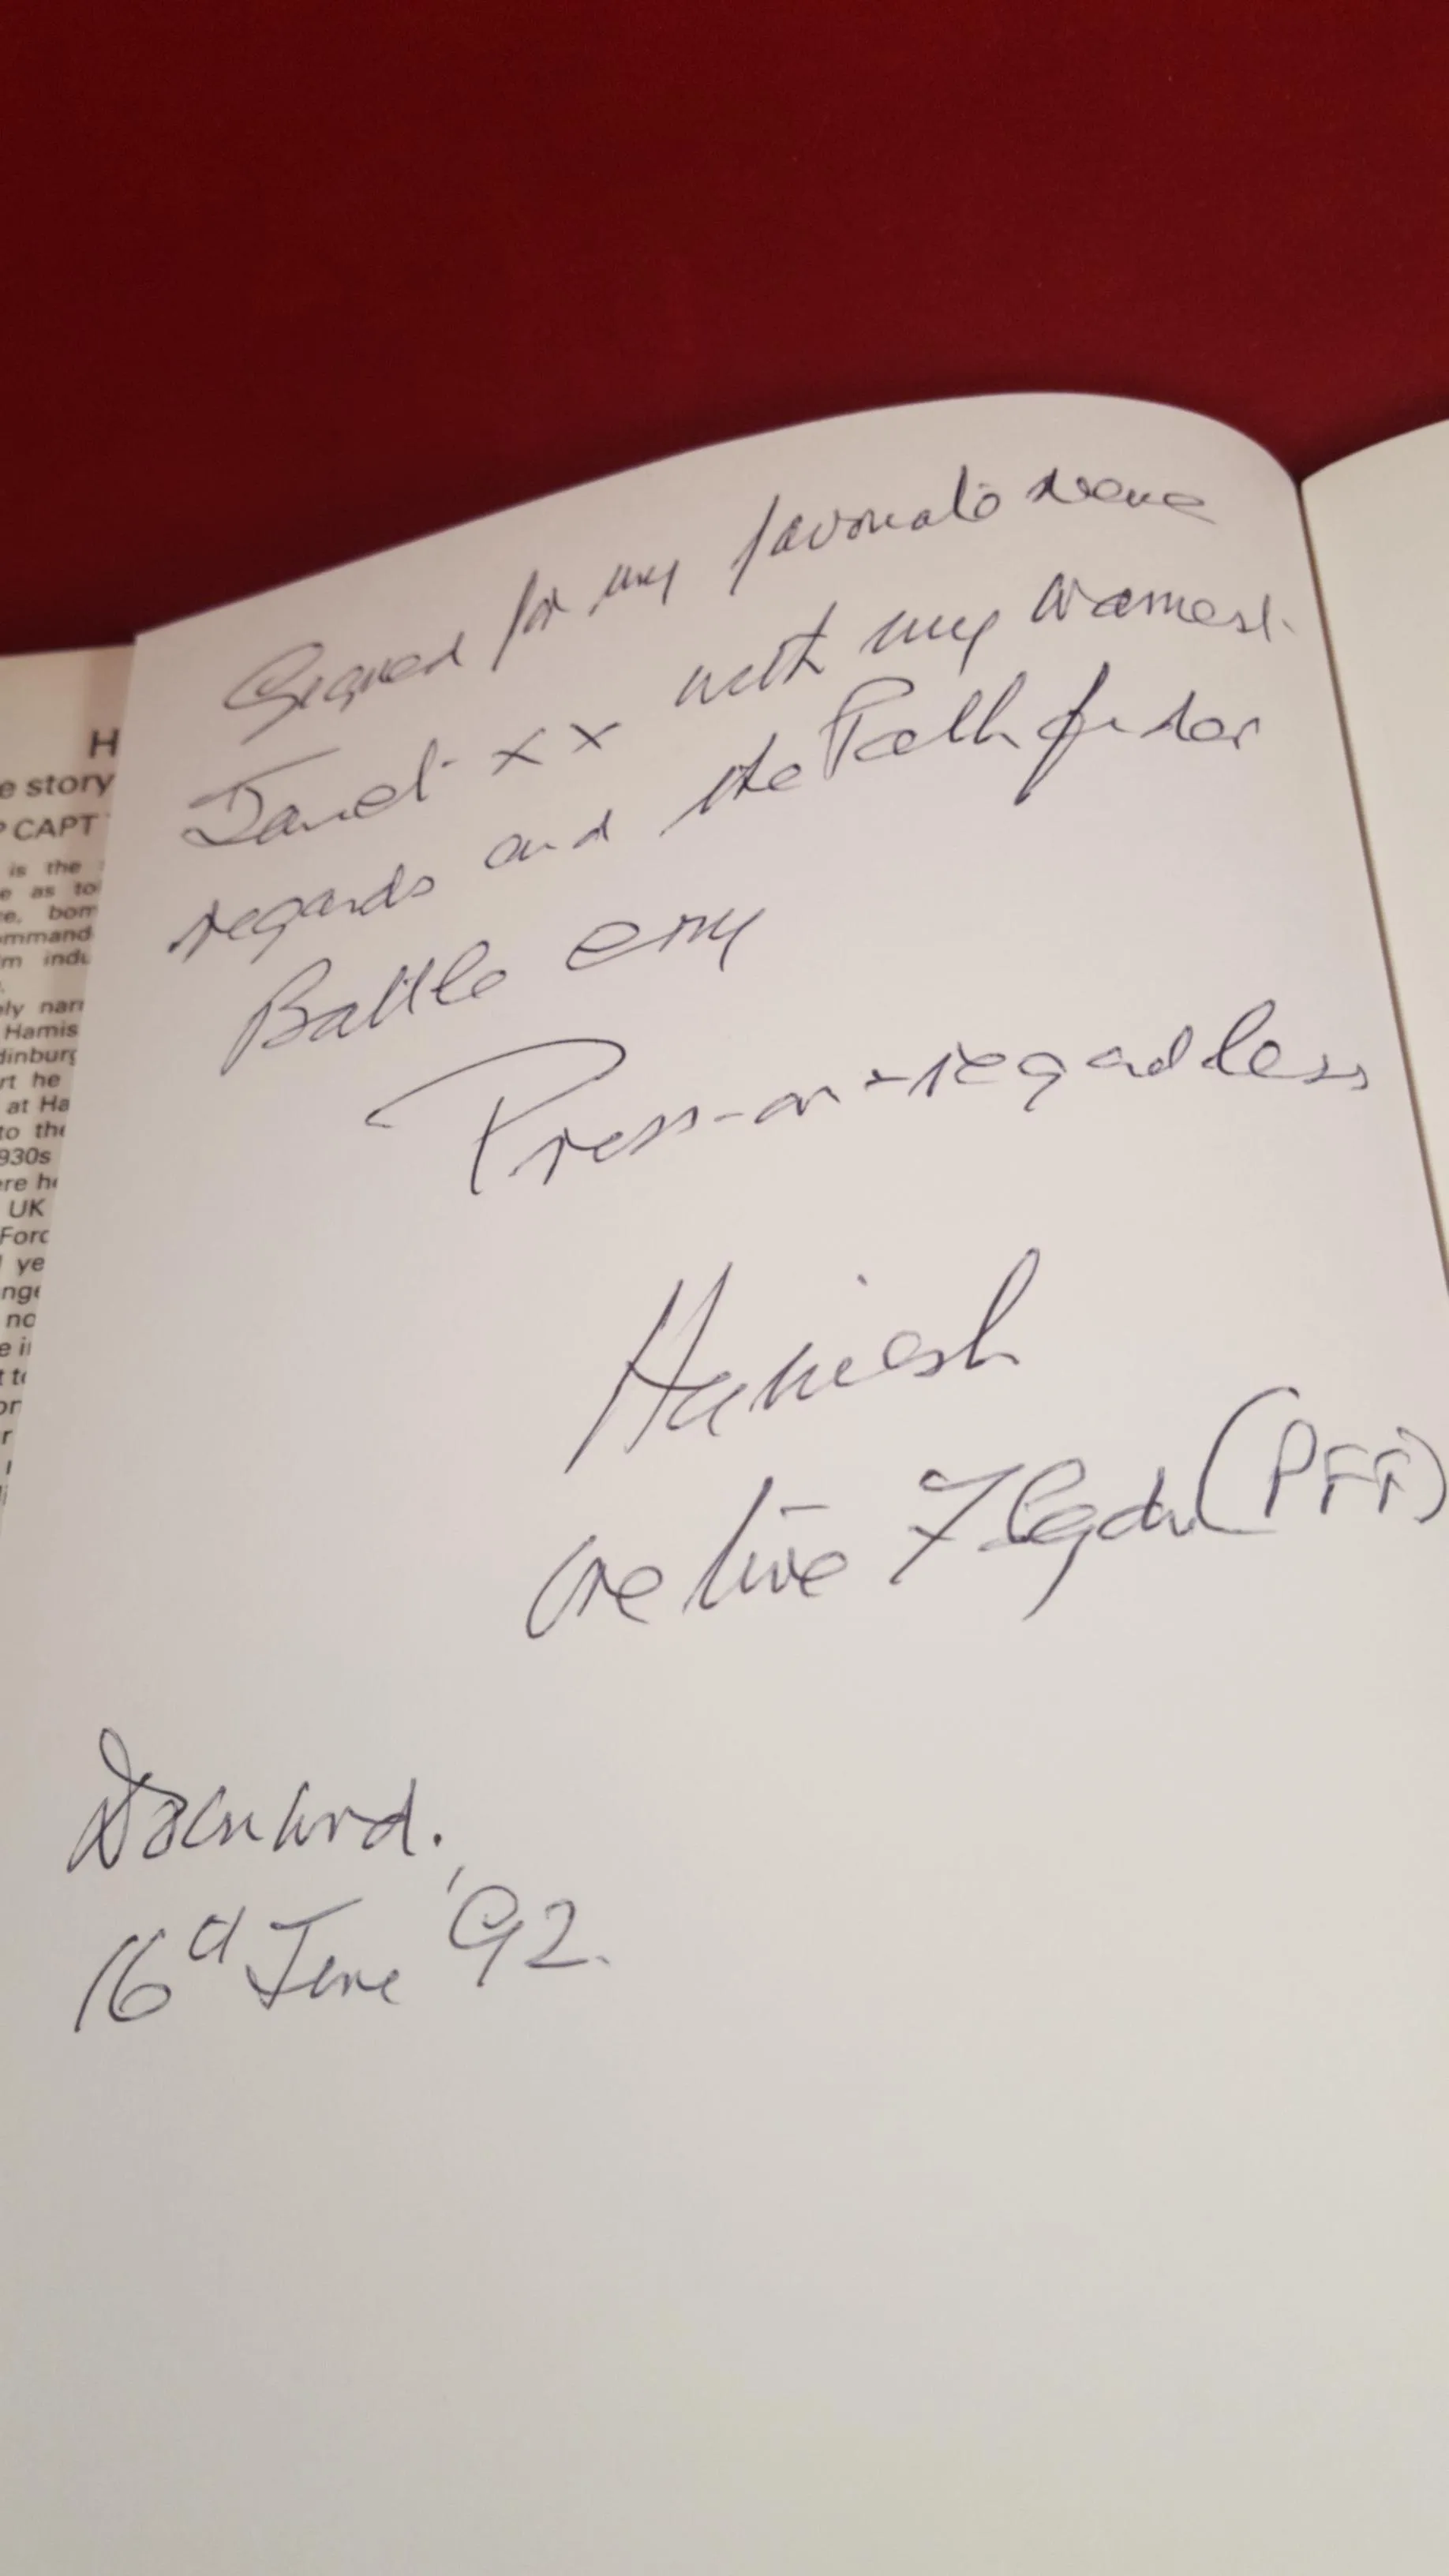 H
e story
CAPT
is the
e as tol
re, bom
ommand
m indu
ely narr
Hamis
dinburg
rt he
at Ha
to the
930s
ere he
UK
Forc
ye
nge
no
e i
t t
or
r
Signed for my favourite
Janet xx with my warmest
regards and the Pathfinder
Battle cry
Press-on-regardless
Hamish
7 Sqdn (PFF)
16th June '92.